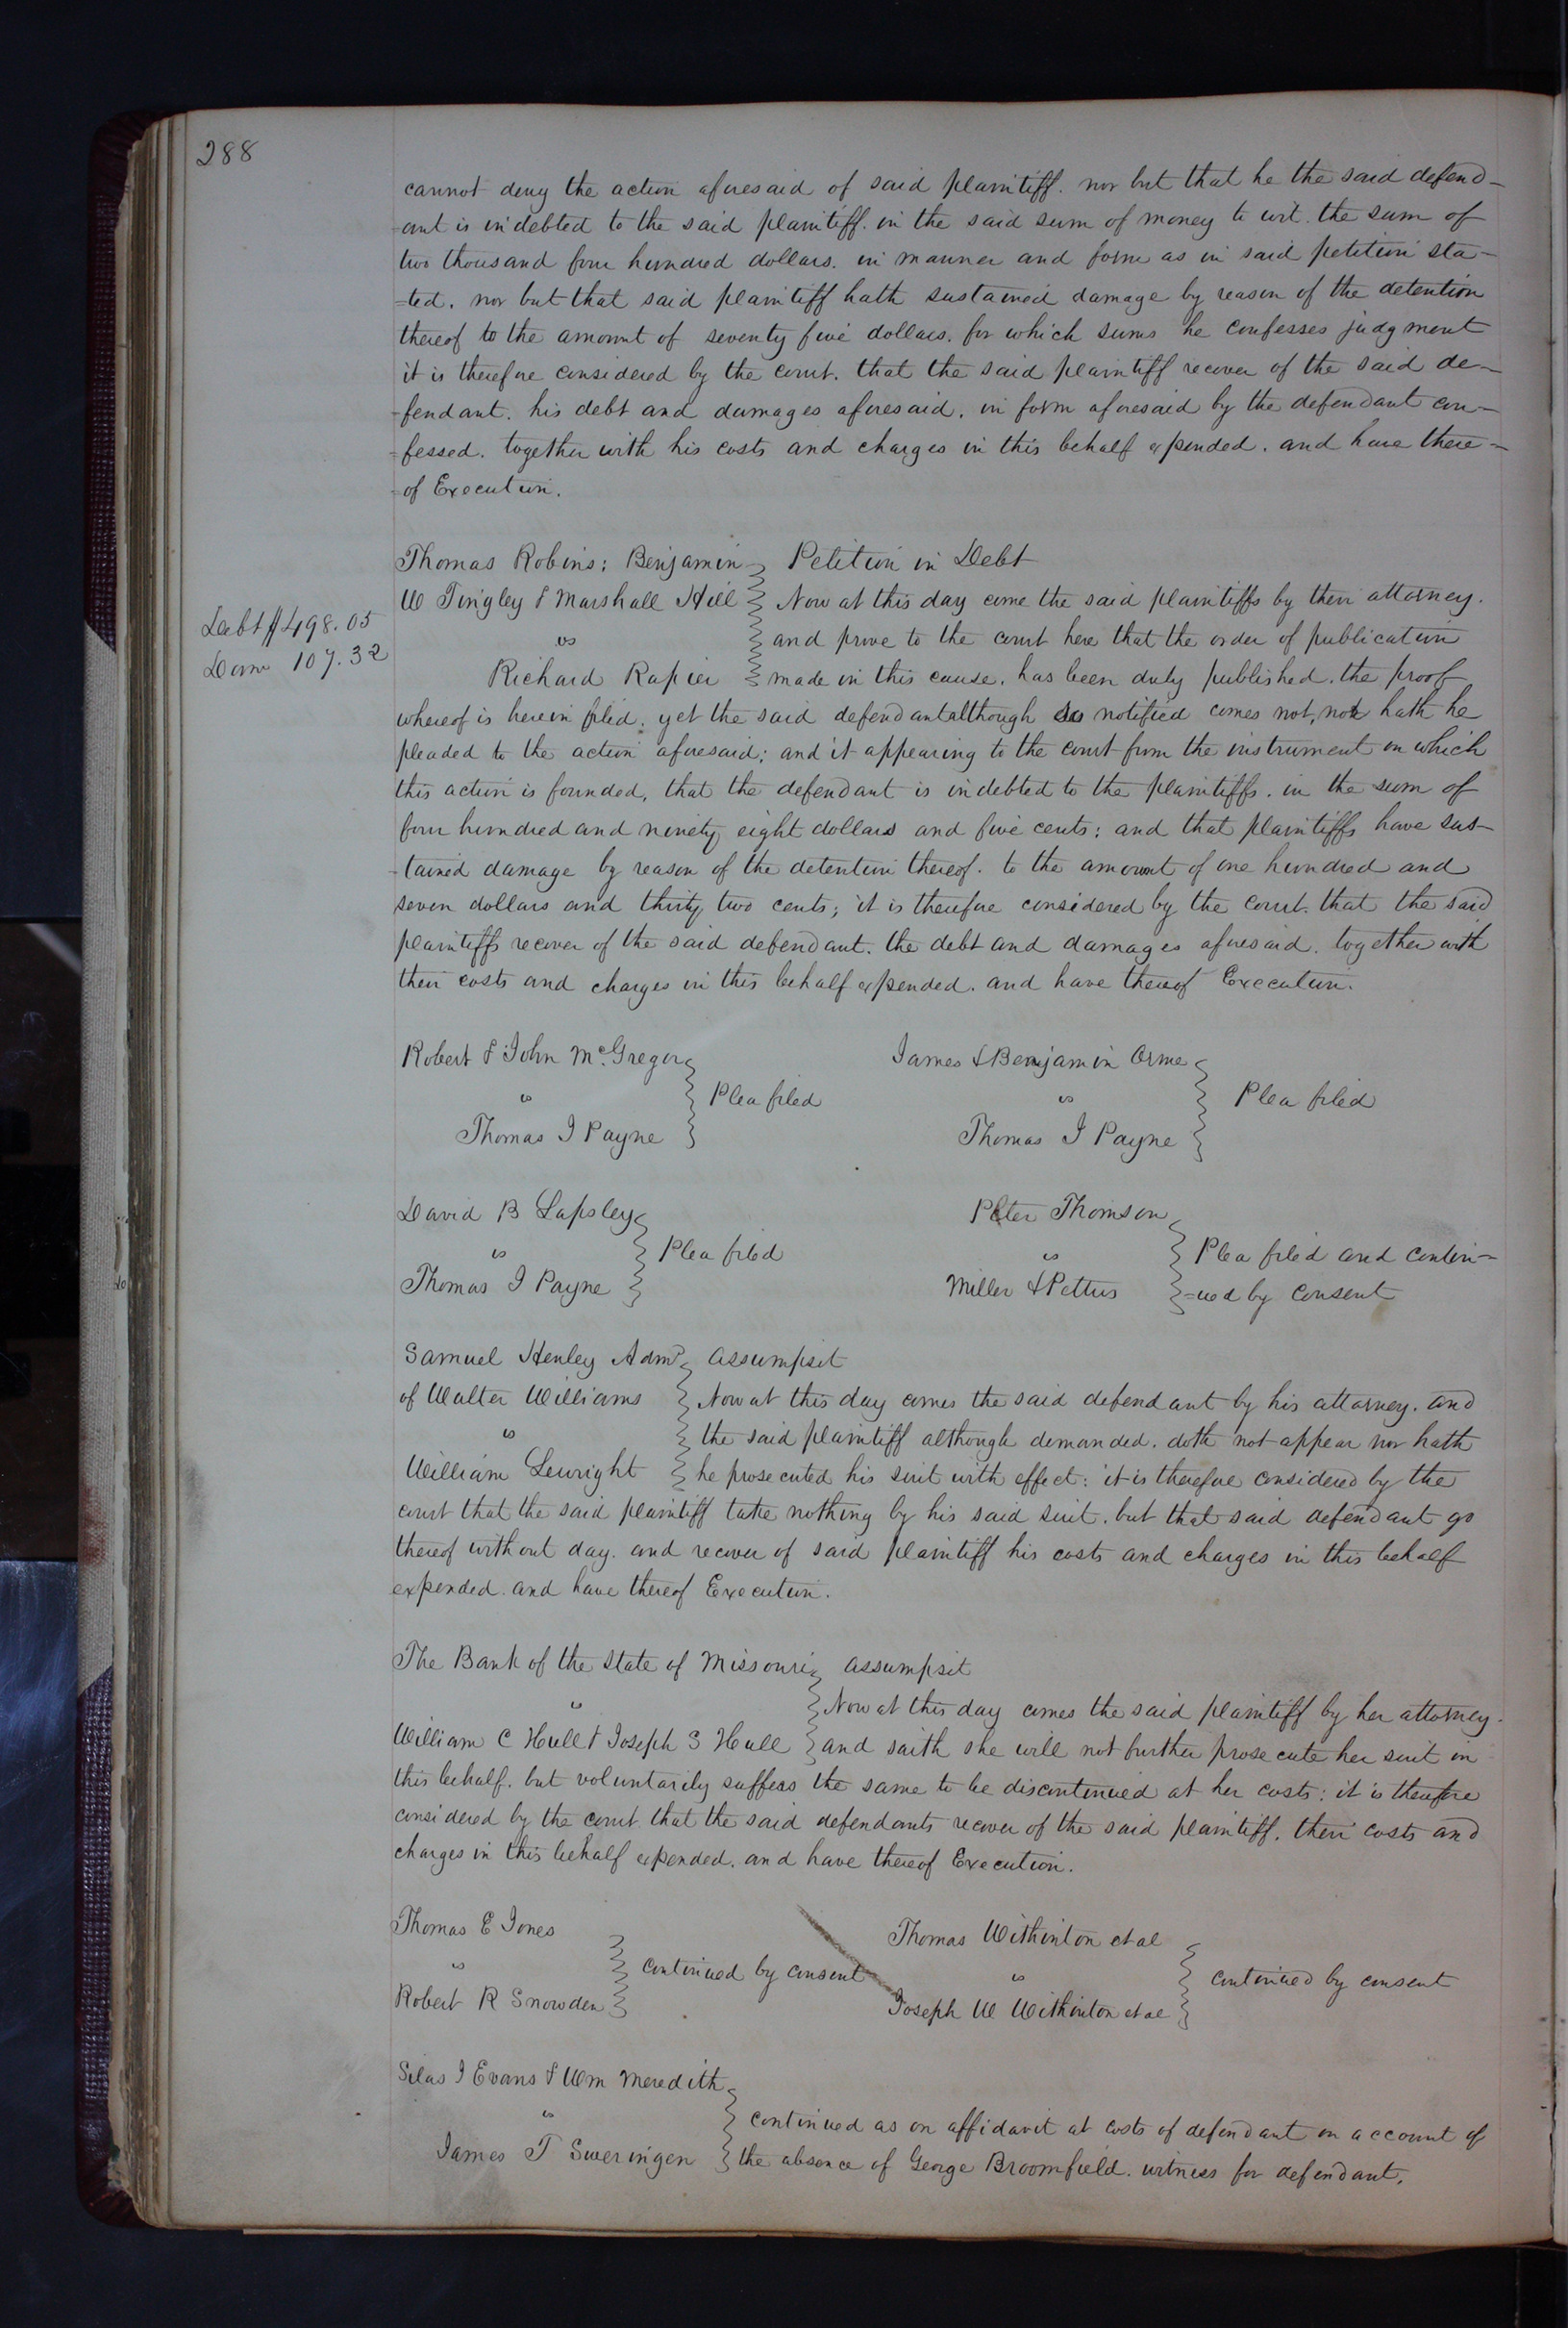 288
cannot deny the action aforesaid of said plaintiff. nor but that he the said defend-
-ant is indebted to the said plaintiff. in the said sum of money to wit. the sum of
two thousand four hundred dollars. in manner and form as in said petition sta-
-ted. nor but that said plaintiff hath sustained damage by reason of the detention
thereof to the amount of seventy five dollars. for which sums he confesses judgment
it is therefore considered by the court. that the said plaintiff recover of the said de-
-fendant. his debt and damages aforesaid. in form aforesaid by the defendant con-
-fessed. together with his costs and charges in this behalf expended. and have there-
-of Execution.
Thomas Robins; Benjamin Petition in Debt
W Tingley & Marshall Hill Now at this day come the said plaintiffs by their attorney.
Debt $498.05
vs and prove to the court here that the order of publication
Dam 107.32
Richard Rapier made in this cause. has been duly published. the proof
whereof is herein filed. yet the said defendant although so notified comes not, not hath he
pleaded to the action aforesaid; and it appearing to the court from the instrument on which
this action is founded, that the defendant is indebted to the plaintiffs. in the sum of
four hundred and ninety eight dollars and five cents; and that plaintiffs have sus-
-tained damage by reason of the detention thereof. to the amount of one hundred and
seven dollars and thirty two cents; it is therefore considered by the court. that the said
plaintiffs recover of the said defendant. the debt and damages aforesaid. together with
their costs and charges in this behalf expended. and have thereof Execution.
Robert & John McGregor
vs Plea filed
Thomas J Payne
James & Benjamin Orme
vs Plea filed
Thomas J Payne
David B Lapsley
vs Plea filed
Thomas J Payne
Peter Thomson
vs Plea filed and contin-
Miller & Pettus -ued by consent
Samuel Henley Admr Assumpsit
of Walter Williams Now at this day comes the said defendant by his attorney. and
vs the said plaintiff although demanded. doth not appear nor hath
William Lewright he prosecuted his suit with effect: it is therefore considered by the
court that the said plaintiff take nothing by his said suit. but that said defendant go
thereof without day. and recover of said plaintiff his costs and charges in this behalf
expended. and have thereof Execution.
The Bank of the State of Missouri Assumpsit
vs Now at this day comes the said plaintiff by her attorney.
William C Hull & Joseph S Hull and saith she will not further prosecute her suit in
this behalf. but voluntarily suffers the same to be discontinued at her costs: it is therefore
considered by the court that the said defendants recover of the said plaintiff. their costs and
charges in this behalf expended. and have thereof Execution.
Thomas E Jones
vs continued by consent
Robert R Snowden
Thomas Withinton et al
vs continued by consent
Joseph W Withinton et al
Silas J Evans & Wm Meredith
vs continued as on affidavit at costs of defendant on account of
James T Sweringen the absence of George Broomfield. witness for defendant.